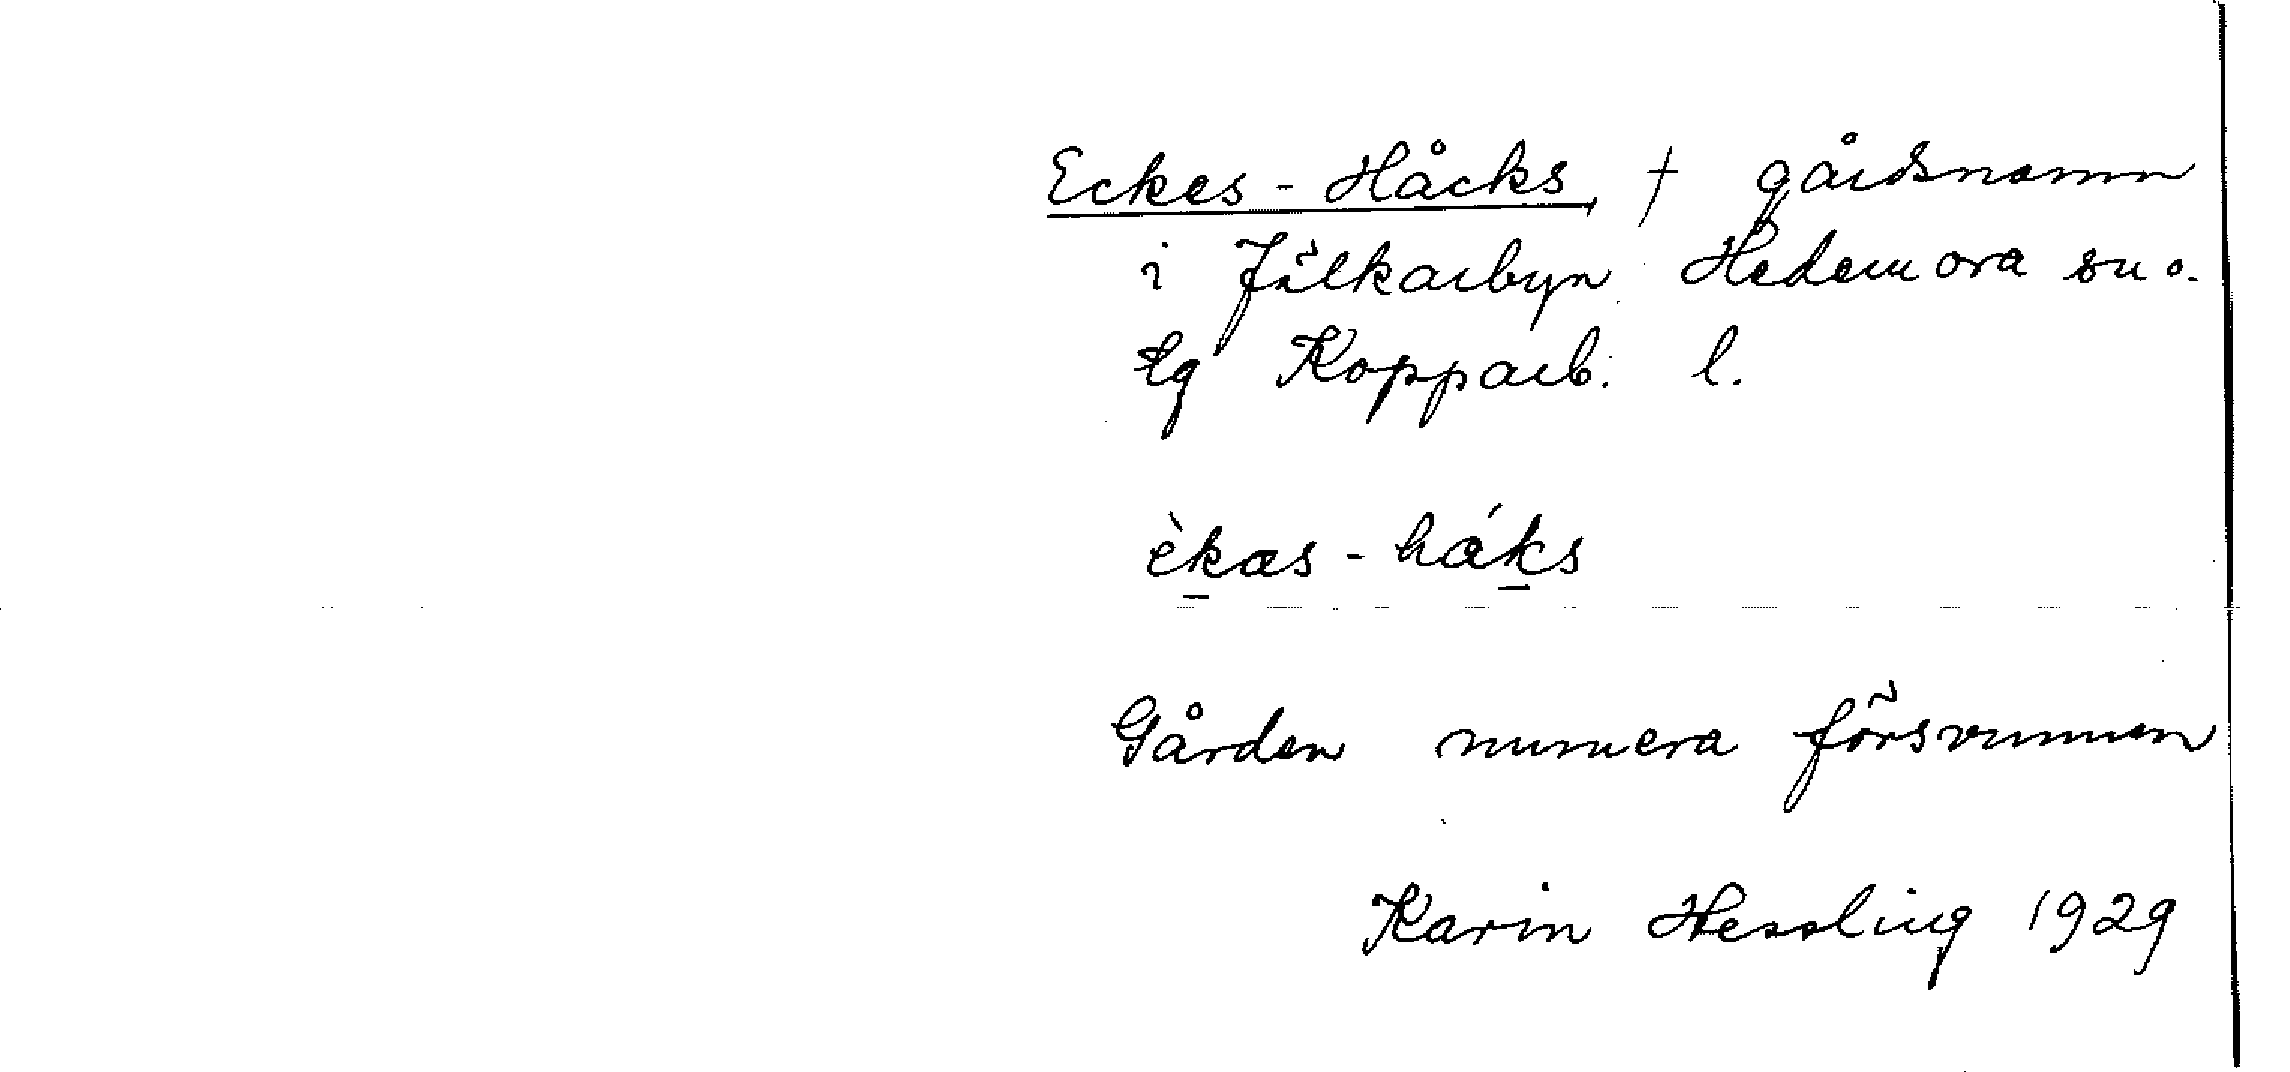 Eckes - Håcks, † gårdsnamn
i Jälkarbyn Hedemora sn o.
tg Kopparb. l.
èkas - háks
Gården numera försvunnen
Karin Hessling 1929